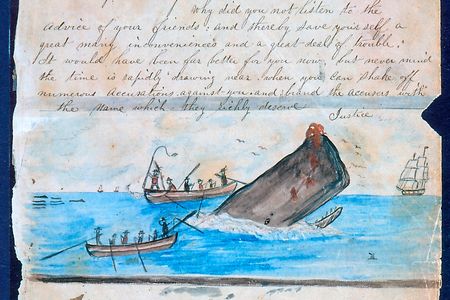 Why did you not listen to the
advice of your friends; and thereby save yourself a
great many inconveniences and a great deal of trouble;
It would have been far better for you now, but never mind
the time is rapidly drawing near when you can shake off
numerous accusations against you and brand the accusers with
the name which they richly deserve
Justice